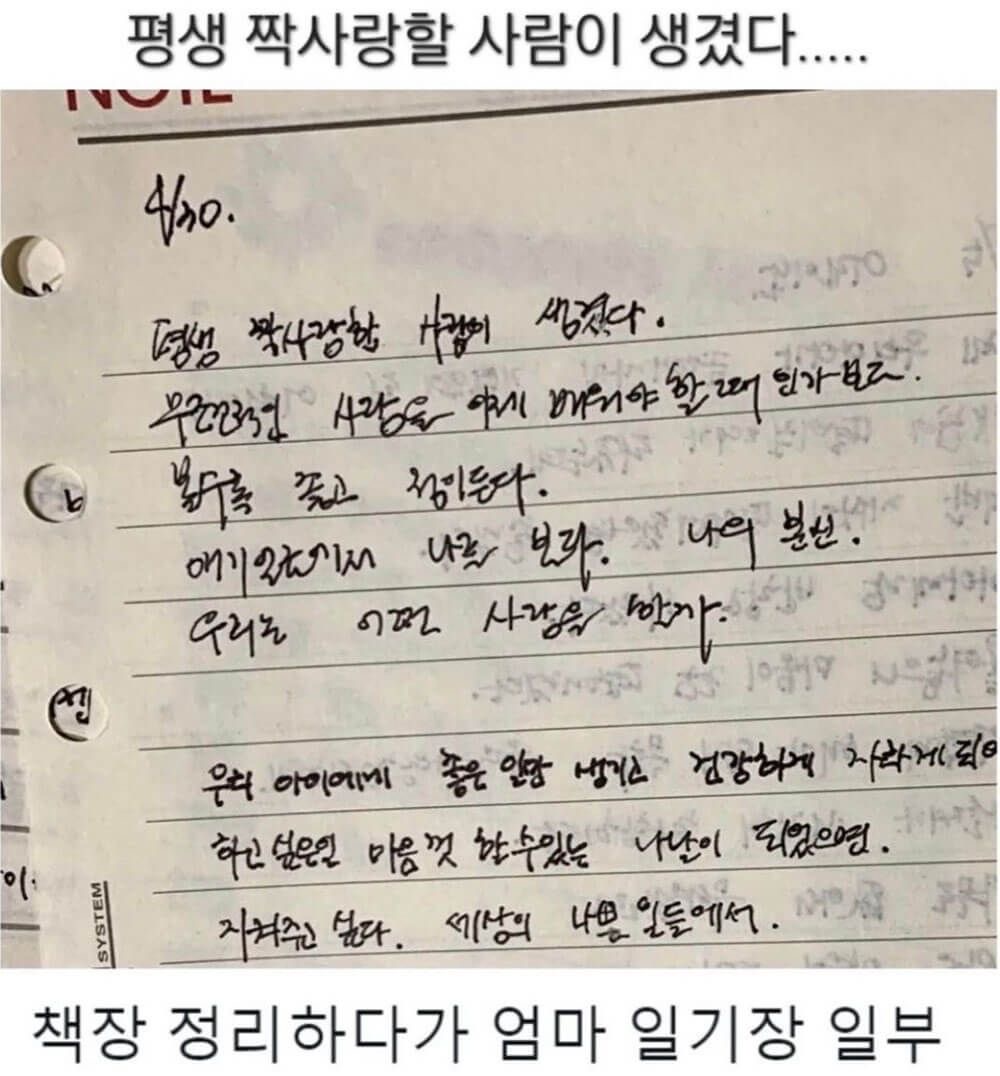 평생 짝사랑할 사람이 생겼다.....
NOTE
4/30.
평생 짝사랑할 사람이 생겼다.
무조건적인 사랑을 이제 배워야 할 때 인가보다.
볼수록 좋고 정이든다.
애기 일 나를 보라. 나의 분신.
우리는 어떤 사랑을 할까.
우리 아이에게 좋은 일만 생기고 건강하게 자라게 되어
하고 싶은일 마음껏 할 수 있는 나날이 되었으면.
지켜주고 싶다. 세상의 나쁜 일들에서.
SYSTEM
책장 정리하다가 엄마 일기장 일부